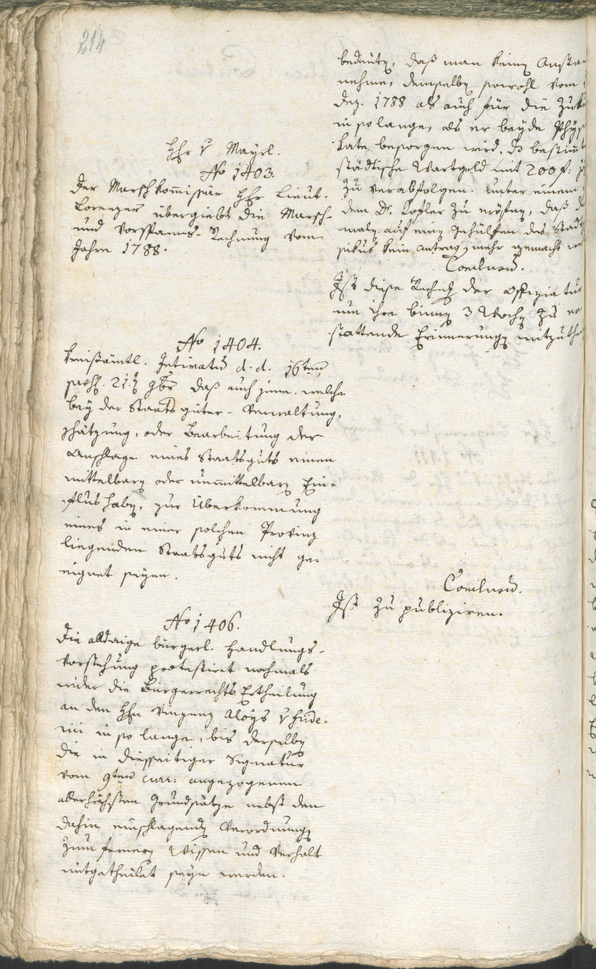 214
Hr. v. Mayrl.
No 1403.
Der Marschkommissär Hr. Lieut.
Lorenzer übergiebt die Marsch-
und Vorspanns-Rechnung vom
Jahre 1788.
No 1404.
Kreisämtl. Intimatum d. d. 16ten
daß auch jene, welche
bey der Staatsgüter-Verwaltung,
Schätzung, oder Bearbeitung der
Anschlage eines Staatsguts einen
mittelbaren oder unmittelbaren Ein-
fluß haben, zur Überkommung
eines in einer solchen Provinz
liegenden Staatsguts nicht ge-
eignet seyen.
No 1406.
Die allhiesige bürgerl. Handlungs-
Vorstehung protestiret nochmals
wider die Bürgerrechts Ertheilung
an den Hrn Vinzenz Aloys v
in so lange, bis derselben
die in diesseitiger Signatur
vom 9ten curr. angezogenen
allerhöchsten Grundsätze nebst den
dahin einschlagenden Verordnungen
zum fernern Wissen und Verhalt
mitgetheilet seyn werden.
bedeuten, daß man keinen Anstand
nehme, demselben sowohl vom
Dez. 1788 als auch für die
in so lange, als er beyde
besorgen wird, das
städtische Wartgeld mit 200 f.
zu verabfolgen. Unter einem
dem Dr. zu eröfnen, daß
auf einen Gehülfen des Stadt
kein Antrag mehr gemacht
Conclusum.
Ist diese Rechnung der
um ihre binnen 3 Wochen zu
stattende Erinnerung mitzutheilen
Conclusum.
Ist zu publiziren.